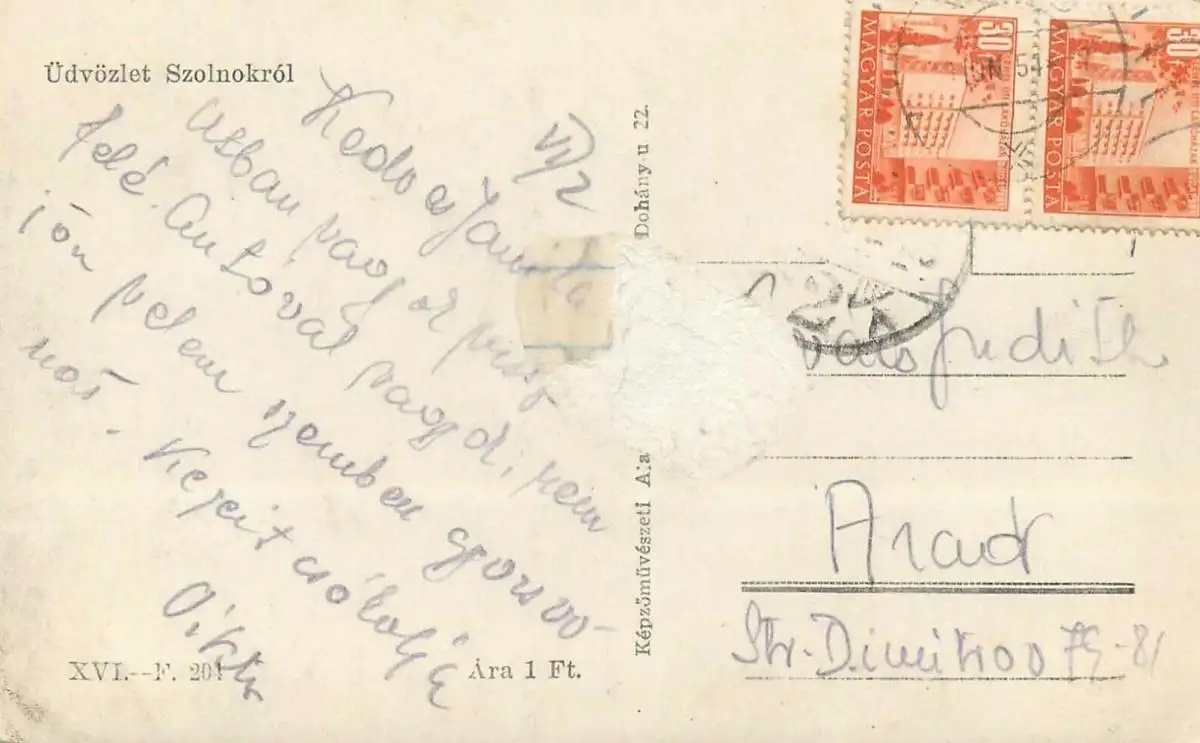 Üdvözlet Szolnokról
VI/2
Kedves
Usban vagyok pusz
felé. Autóval vagyok, nem
jön velem szemben gyorsvo-
nat. Kezeit csókolja
XVI.--F. 201
Ára 1 Ft.
Képzőművészeti Ala
Dohány u 22.
30
MAGYAR POSTA
30
MAGYAR POSTA
JUN 54
Judith
Arad
Str. Dimitrov 79-81